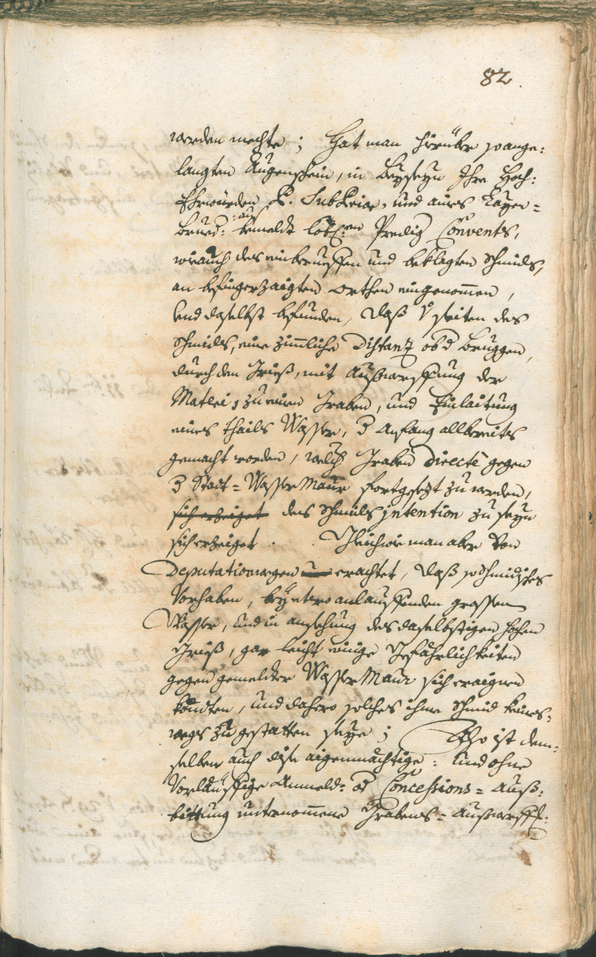 82.
werden mechte; hat man hierüber so ange-
langten Augenschein, in Beyseyn Ihro Hoch:
Ehrwürden P. SubPrior, und aines Layen-
brued: aus bemeldt löb:en Predig Convents,
wie auch des einberuffen und beklagten Schmids,
an besagerzaigten Orthen eingenommen,
und daselbst befunden, daß seiten des
Schmids, eine zimmliche Distanz ob d Bruggen,
durch den Grieß, mit Außwerffung der
Matteri, zu einen Graben, und Einlaitung
eines theils Wasser, d Anfang allbereits
gemacht worden, welch Graben directè gegen
d Stadt-Wasser Maur fortgesezt zu werden,
des Schmids intention zu seyn
sich erzeiget. Gleichwie man aber von
Deputations wegen erachtet, daß so schmidisches
Vorhaben, bey etwo anlauffenden grossen
Wasser, und in ansehung des daselbstigen hohen
Grieß, gar leicht einige Gefährlichkeiten
gegen gemeldter Wasser Maur sich eraignen
köndten, und dahero solches ihme Schmid keines-
wegs zu gestatten seye; Also ist dem-
selben auch dise aigenmächtige: und ohne
Vorläuffige Anmeld- od Concessions-Auß-
bittung unternommene Grabens-Außwerff-